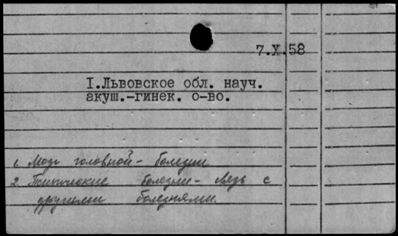 7.X.58
I.Львовское обл. науч.
акуш.-гинек. о-во.
1. Мозг головной - болезни
2. Психические болезни - связь с
другими болезнями